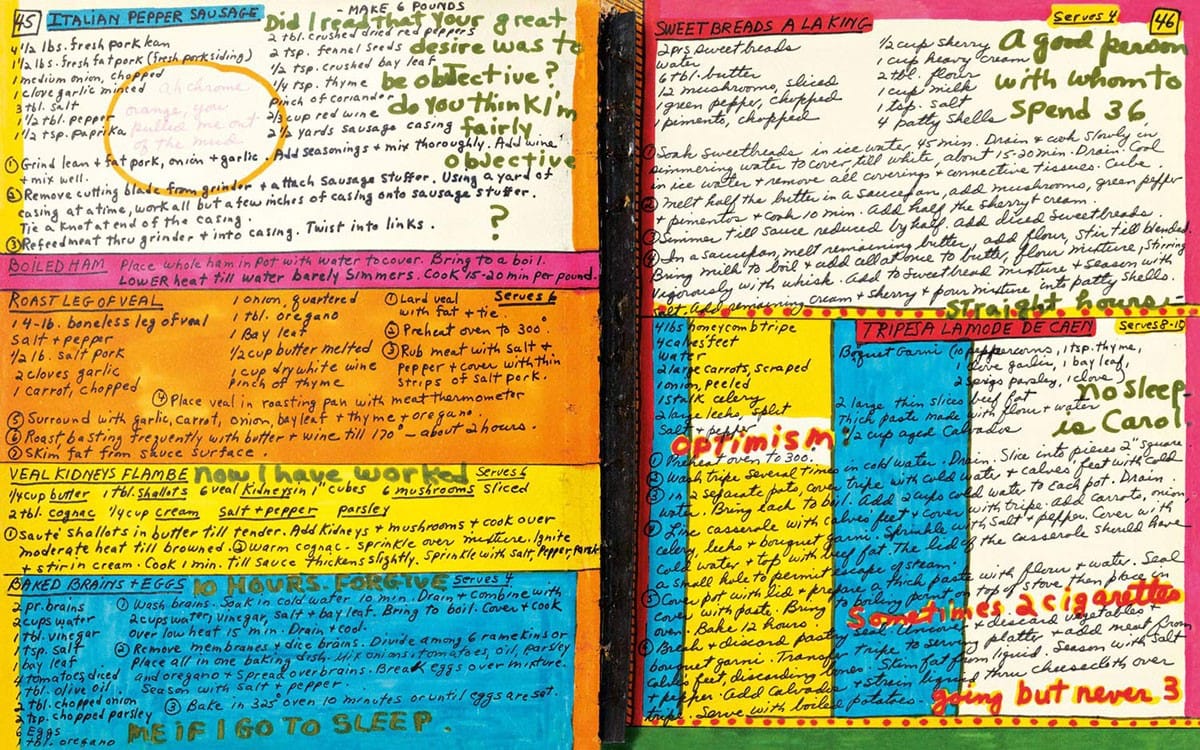 45
ITALIAN PEPPER SAUSAGE
- MAKE 6 POUNDS
4 1/2 lbs. fresh pork lean
1 1/2 lbs. fresh fat pork (fresh pork siding)
1 medium onion, chopped
1 clove garlic minced
3 tbl. salt
1 1/2 tbl. pepper
1 1/2 tsp. paprika
2 tbl. crushed dried red peppers
2 tsp. fennel seeds
1/2 tsp. crushed bay leaf
1/4 tsp. thyme
Pinch of coriander
2/3 cup red wine
2 1/2 yards sausage casing
Did I read that your great
desire was to
be objective?
do you think I'm
fairly
objective
?
Ah chrome
orange, you
pulled me out
of the mud
① Grind lean + fat pork, onion + garlic. Add seasonings + mix thoroughly. Add wine
+ mix well.
② Remove cutting blade from grinder + attach sausage stuffer. Using a yard of
casing at a time, work all but a few inches of casing onto sausage stuffer.
Tie a knot at end of the casing.
③ Refeed meat thru grinder + into casing. Twist into links.
BOILED HAM Place whole ham in pot with water to cover. Bring to a boil.
LOWER heat till water barely simmers. Cook 15-20 min per pound.
ROAST LEG OF VEAL
Serves 6
1 4-lb. boneless leg of veal
Salt + pepper
1/2 lb. salt pork
2 cloves garlic
1 carrot, chopped
1 onion, quartered
1 tbl. oregano
1 Bay leaf
1/2 cup butter melted
1 cup dry white wine
Pinch of thyme
① Lard veal
with fat + tie.
② Preheat oven to 300°
③ Rub meat with salt +
pepper + cover with thin
strips of salt pork.
④ Place veal in roasting pan with meat thermometer
⑤ Surround with garlic, carrot, onion, bay leaf + thyme + oregano.
⑥ Roast basting frequently with butter + wine till 170° - about 2 hours.
⑦ Skim fat from sauce surface.
VEAL KIDNEYS FLAMBE
now I have worked
Serves 6
1/4 cup butter 1 tbl. shallots 6 veal kidneys in 1" cubes 6 mushrooms sliced
2 tbl. cognac 1/4 cup cream salt + pepper parsley
① Sauté shallots in butter till tender. Add kidneys + mushrooms + cook over
moderate heat till browned. ② Warm cognac. Sprinkle over mixture. Ignite
+ stir in cream. Cook 1 min. till sauce thickens slightly. Sprinkle with salt, pepper,
BAKED BRAINS + EGGS
10 HOURS. FORGIVE
Serves 4
2 pr. brains
2 cups water
1 tbl. vinegar
1 tsp. salt
1 bay leaf
4 tomatoes, diced
1 tbl. olive oil
1 tbl. chopped onion
2 tsp. chopped parsley
6 Eggs
1 tbl. oregano
① Wash brains. Soak in cold water 10 min. Drain + combine with
2 cups water, vinegar, salt + bay leaf. Bring to boil. Cover + cook
over low heat 15 min. Drain + cool.
② Remove membranes + dice brains. Divide among 6 ramekins or
Place all in one baking dish. Mix onions, tomatoes, oil, parsley
and oregano + spread over brains. Break eggs over mixture.
Season with salt + pepper.
③ Bake in 325° oven 10 minutes or until eggs are set.
ME IF I GO TO SLEEP.
SWEETBREADS A LA KING
Serves 4
46
2 prs sweetbreads
Water
6 tbl. butter
12 mushrooms, sliced
1 green pepper, chopped
1 pimento, chopped
1/2 cup sherry
1 cup heavy cream
2 tbl. flour
1 cup milk
1 tsp. salt
4 patty shells
A good person
with whom to
spend 36
① Soak sweetbreads in ice water, 45 min. Drain + cook slowly in
simmering water to cover, till white, about 15-20 min. Drain. Cool
in ice water + remove all coverings + connective tissues. Cube.
② Melt half the butter in a saucepan, add mushrooms, green pepper
+ pimentos + cook 10 min. Add half the sherry + cream.
③ Simmer till sauce reduced by half. Add diced sweetbreads.
④ In a saucepan, melt remaining butter, add flour, stir till blended.
Bring milk to boil + add all at once to butter, flour mixture, stirring
vigorously with whisk. Add to sweetbread mixture + season with
salt. Add remaining cream + sherry + pour mixture into patty shells.
straight hours -
TRIPES A LA MODE DE CAEN
Serves 8-10
4 lbs honeycomb tripe
4 calves feet
Water
2 large carrots, scraped
1 onion, peeled
1 stalk celery
2 large leeks, split
Salt + pepper
Boquet Garni (10 peppercorns, 1 tsp. thyme,
1 clove garlic, 1 bay leaf,
2 sprigs parsley, 1 clove
2 large thin slices beef fat
Thick paste made with flour + water
1/2 cup aged Calvados
no sleep-
is Carol.
optimism:
① Preheat oven to 300°.
② Wash tripe several times in cold water. Drain. Slice into pieces 2" square
③ In 2 separate pots, cover tripe with cold water + calves feet with cold
water. Bring each to boil. Add 2 cups cold water to each pot. Drain.
④ Line casserole with calves' feet + cover with tripe. Add carrots, onion,
celery, leeks + bouquet garni. Sprinkle with salt + pepper. Cover with
cold water + top with beef fat. The lid of the casserole should have
a small hole to permit escape of steam.
⑤ Cover pot with lid + prepare a thick paste with flour + water. Seal
cover with paste. Bring to boiling point on top of stove then place in
oven. Bake 12 hours.
Sometimes 2 cigarettes
⑥ Break + discard pastry seal. Uncover + discard vegetables +
bouquet garni. Transfer tripe to serving platter + add meat from
calves feet, discarding bones. Skim fat from liquid. Season with salt
+ pepper. Add Calvados + strain liquid thru cheesecloth over
tripe. Serve with boiled potatoes.
going but never 3